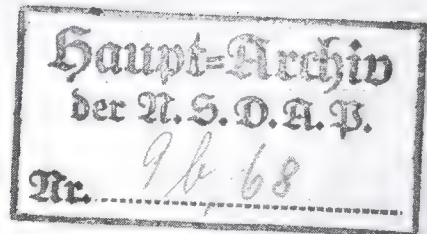 Haupt=Archiv
der N.S.D.A.P.
Nr. 9b, 68